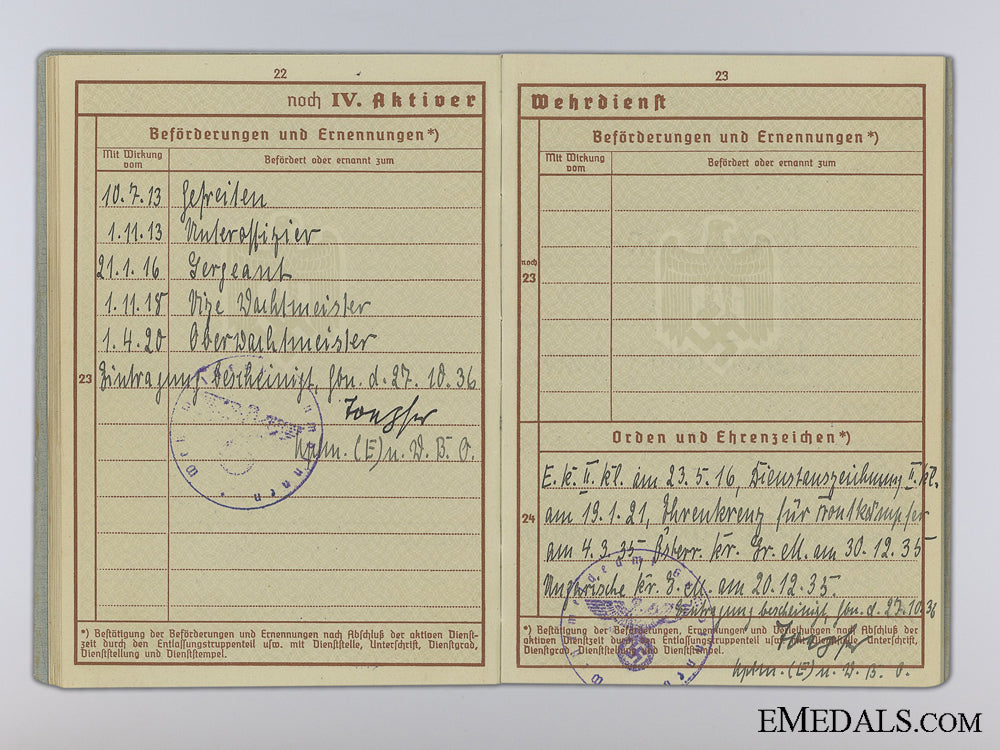 22
noch IV. Aktiver
Beförderungen und Ernennungen*)
Mit Wirkung vom
Befördert oder ernannt zum
10.7.13 Gefreiten
1.11.13 Unteroffizier
21.1.16 Sergeant
1.11.18 Vize Wachtmeister
1.4.20 Oberwachtmeister
23 Eintragung bescheinigt, Gbn. d. 27.10.36
Hptm. (E) u. W. B. O.
*) Bestätigung der Beförderungen und Ernennungen nach Abschluß der aktiven Dienst-
zeit durch den Entlassungstruppenteil usw. mit Dienststelle, Unterschrift, Dienstgrad,
Dienststellung und Dienststempel.
23
Wehrdienst
Beförderungen und Ernennungen*)
Mit Wirkung vom
Befördert oder ernannt zum
noch
23
Orden und Ehrenzeichen*)
E.K. II. Kl. am 23.5.16, Dienstauszeichnung II. Kl.
24 am 19.1.21, Ehrenkreuz für Frontkämpfer
am 4.3.35, Österr. Kr. Er. M. am 30.12.35
Ungarische Kr. E. M. am 20.12.35.
Eintragung bescheinigt, Gbn. d. 27.10.36
*) Bestätigung der Beförderungen, Ernennungen und Verleihungen nach Abschluß der
aktiven Dienstzeit durch den Entlassungstruppenteil usw. mit Dienststelle, Unterschrift,
Dienstgrad, Dienststellung und Dienststempel.
Hptm. (E) u. W. B. O.
eMedals.com